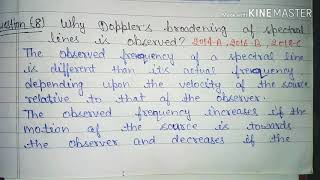 Made with
KINEMASTER
Question (8) Why Doppler's broadening of spectral
lines is observed? 2014-A, 2016-B, 2018-C
The observed frequency of a spectral line
is different than its actual frequency
depending upon the velocity of the source
relative to that of the observer.
The observed frequency increases if the
motion of the source is towards
the observer and decreases if the